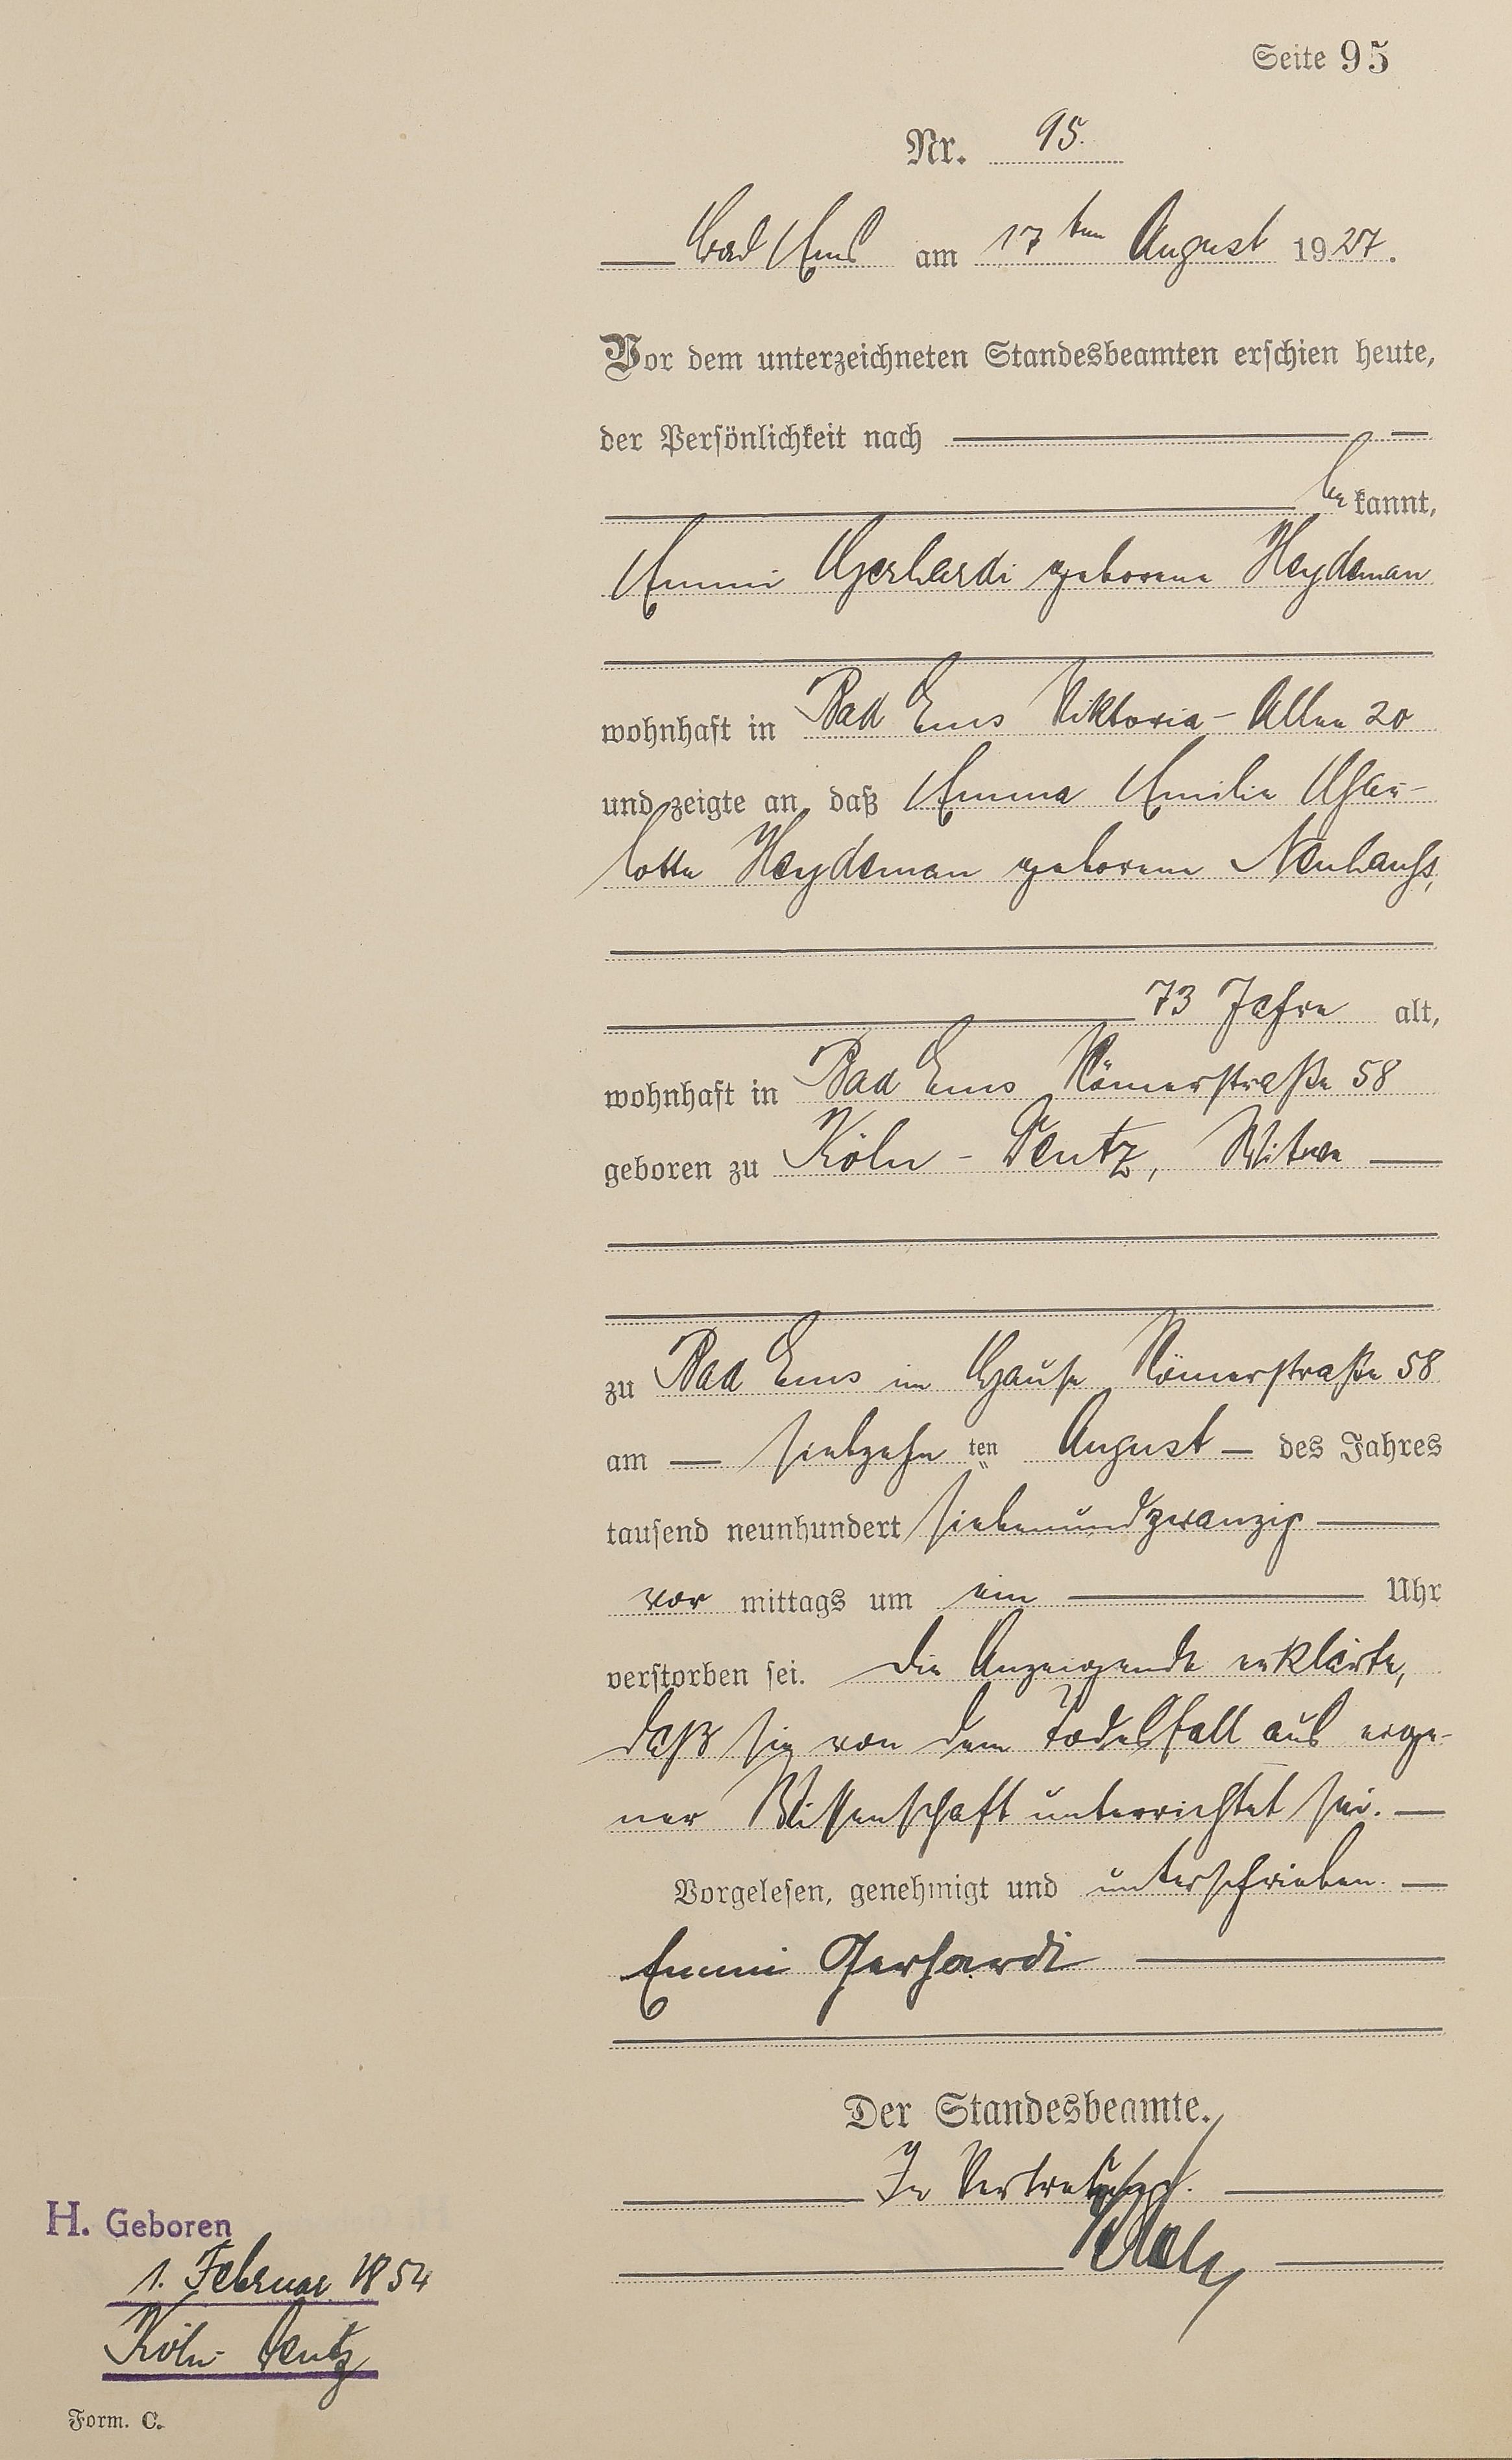 Seite 95
Nr. 95.
Bad Ems am 17ten August 1927.
Vor dem unterzeichneten Standesbeamten erschien heute,
der Persönlichkeit nach
bekannt,
Emmi Gerhardi geborene Heydeman
wohnhaft in Bad Ems Viktoria-Allee 20
und zeigte an, daß Emma Emilie Char-
lotte Heydeman geborene Neuhauss,
73 Jahre alt,
wohnhaft in Bad Ems Römerstraße 58
geboren zu Köln-Deutz, Witwe
zu Bad Ems im Hause Römerstraße 58
am siebzehnten August des Jahres
tausend neunhundert siebenundzwanzig
vor mittags um ein Uhr
verstorben sei. Die Anzeigende erklärte,
daß sie von dem Todesfall aus eige-
ner Wissenschaft unterrichtet sei.
Vorgelesen, genehmigt und unterschrieben.
Emmi Gerhardi
Der Standesbeamte.
In Vertretung.
H. Geboren
1. Februar 1854
Köln-Deutz
Form. C.